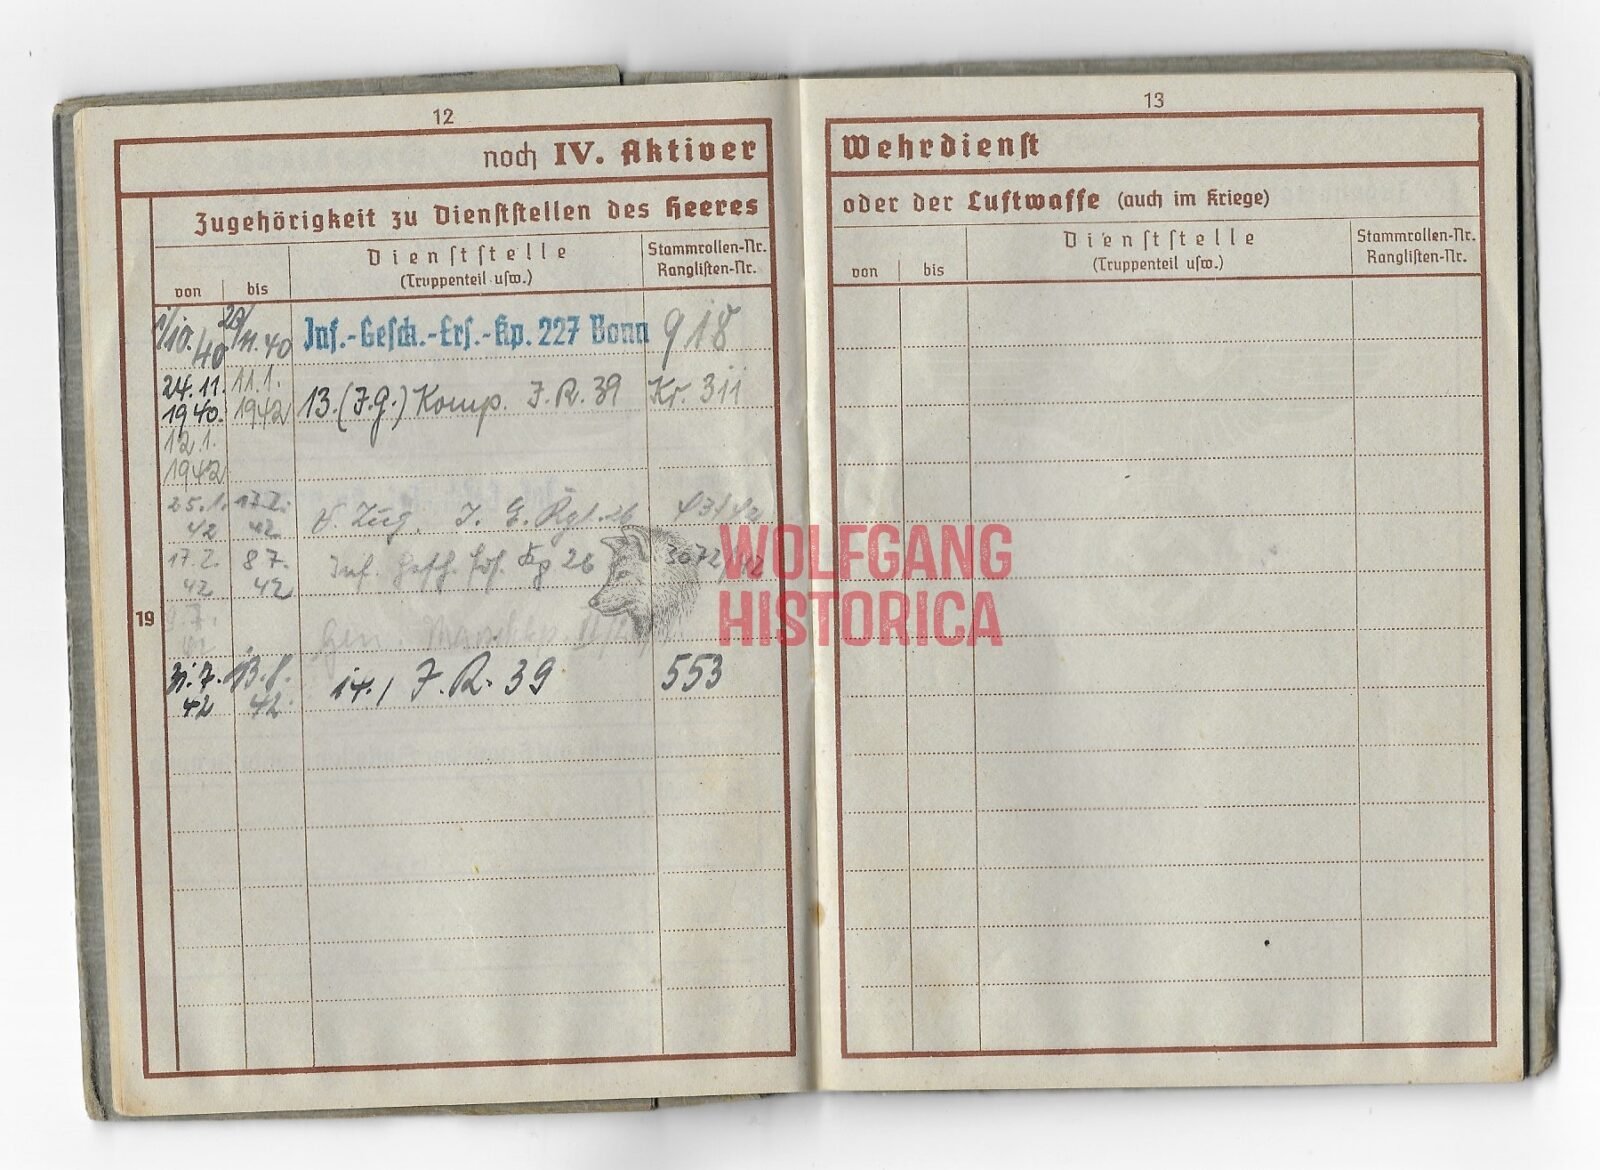 12
noch IV. Aktiver
Zugehörigkeit zu Dienststellen des Heeres
von
bis
Dienststelle
(Truppenteil usw.)
Stammrollen-Nr.
Ranglisten-Nr.
1/10.40
23/11.40
Inf.-Gesch.-Ers.-Kp. 227 Bonn
918
24.11.
1940.
11.1.
1942
13. (J.G.) Komp. J.R. 39
Kr. 311
12.1.
1942
25.1.
42
17.2.
42
Zug. J. E.
43/42
17.2.
42
8.7.
42
Inf. Kp 26
3072/42
9.7.
42
Gen.
19
31.7.
42
13.8.
42.
14./ J.R. 39
553
13
Wehrdienst
oder der Luftwaffe (auch im Kriege)
von
bis
Dienststelle
(Truppenteil usw.)
Stammrollen-Nr.
Ranglisten-Nr.
WOLFGANG
HISTORICA